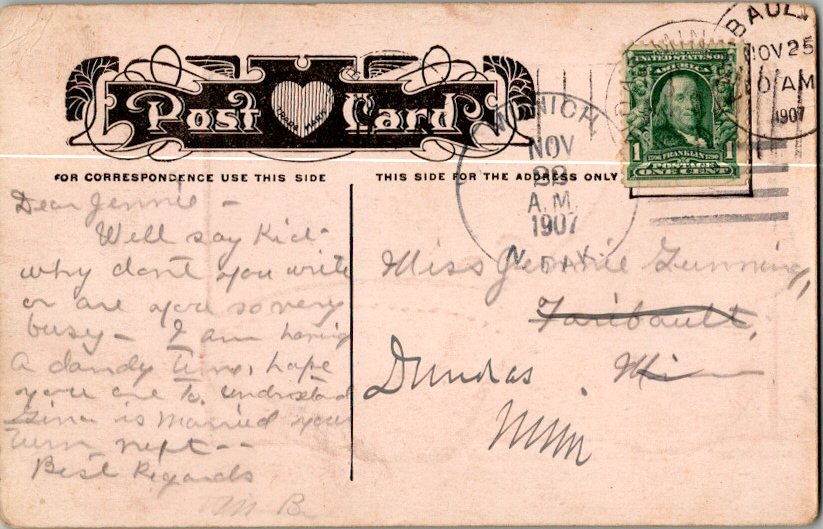 Post Card
TRADE MARK
FOR CORRESPONDENCE USE THIS SIDE
THIS SIDE FOR THE ADDRESS ONLY
UNITED STATES OF
AMERICA
1 1
1706 FRANKLIN 1790
POSTAGE
ONE CENT
BAUL
NOV 25
AM
1907
MUNICH,
NOV
22
A.M.
1907
N. DAK.
Dear Jennie –
Well say Kid-
why dont you write
or are you so very
busy – I am having
a dandy time, hope
you are to. understand
is married your
turn next --
Best Regards
M B.
Miss Jennie Gunning,
Faribault,
Dundas. Minn
Minn